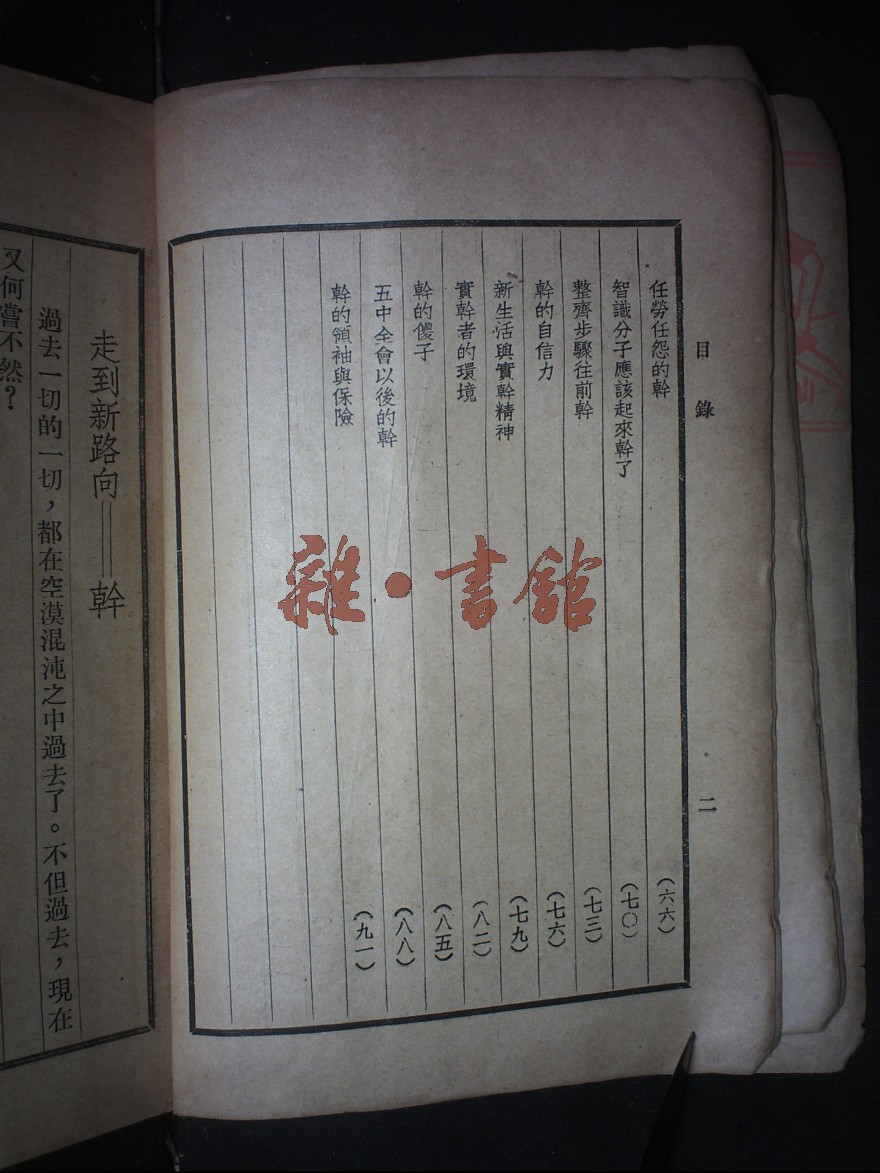 目錄
二
任勞任怨的幹
(六六)
智識分子應該起來幹了
(七〇)
整齊步驟往前幹
(七三)
幹的自信力
(七六)
新生活與實幹精神
(七九)
實幹者的環境
(八二)
幹的傻子
(八五)
五中全會以後的幹
(八八)
幹的領袖與保險
(九一)
雜•書館
走到新路向——幹
過去一切的一切，都在空漠混沌之中過去了。不但過去，現在
又何嘗不然？